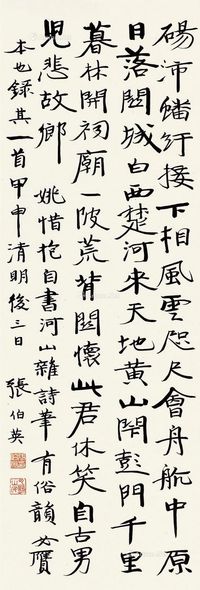 碭沛蟠紆接下相風雲咫尺會舟航中原
日落關城白西楚河來天地黃山閉彭門千里
暮林開祠廟一陂荒背關懷此君休笑自古男
兒悲故鄉 姚惜抱自書河山雜詩筆有俗韻必贗
本也錄其一首甲申清明後三日 張伯英